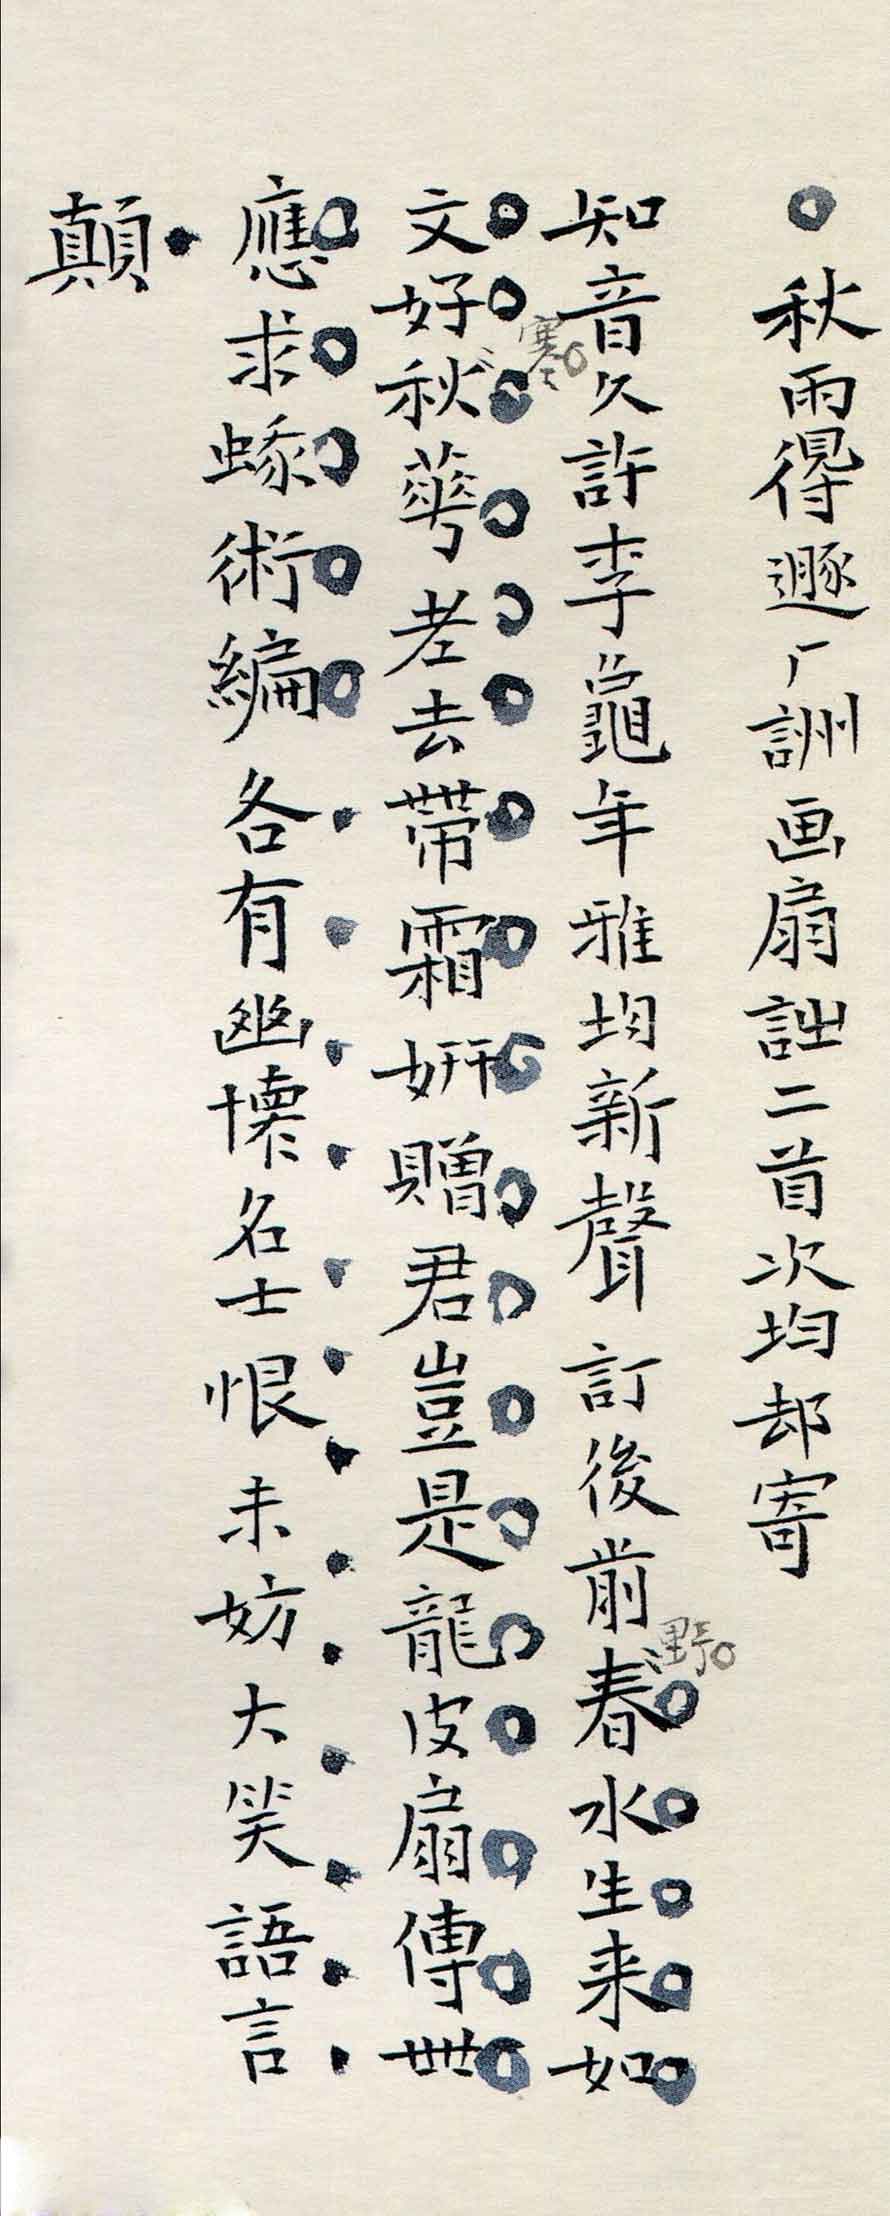 秋雨得遯厂詶画扇詩二首次均却寄
知音久許李龜年雅均新聲訂後前春水生来如
野
文好秋華老去帶霜妍贈君豈是龍皮扇傳世
寒
應求蝝術編各有幽懷名士恨未妨大笑語言
顛